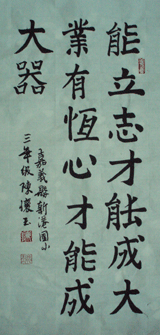 能立志才能成大
業有恆心才能成
大器
嘉義縣新港國小
三年級陳懷玉